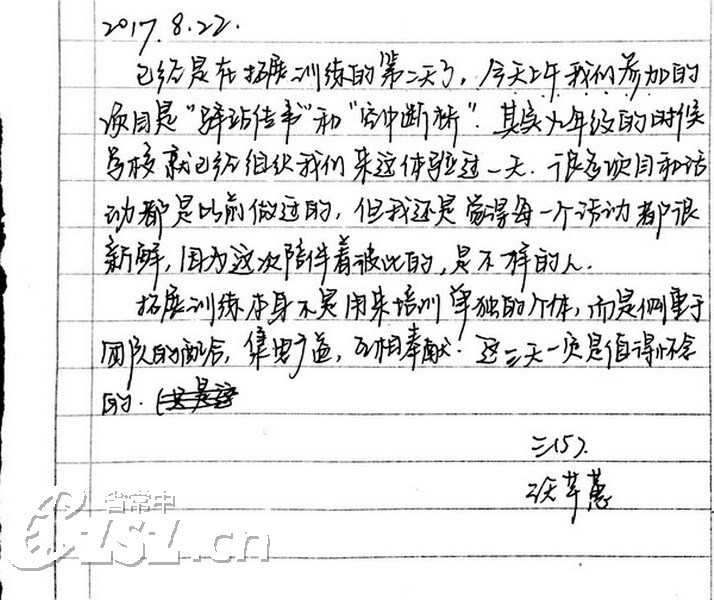 2017.8.22.
已经是在拓展训练的第二天了，今天上午我们参加的
项目是“驿站传书”和“空中断桥”. 其实九年级的时候
学校就已经组织我们来这体验过一天. 很多项目和活
动都是以前做过的, 但我还是觉得每一个活动都很
新鲜, 因为这次陪伴着彼此的, 是不一样的人.
拓展训练本身不是用来培训单独的个体, 而是侧重于
团队的配合, 集思广益, 互相奉献. 这三天一定是值得怀念
的.
二(5).
张芊蕙
省常中
CZSZ.cn